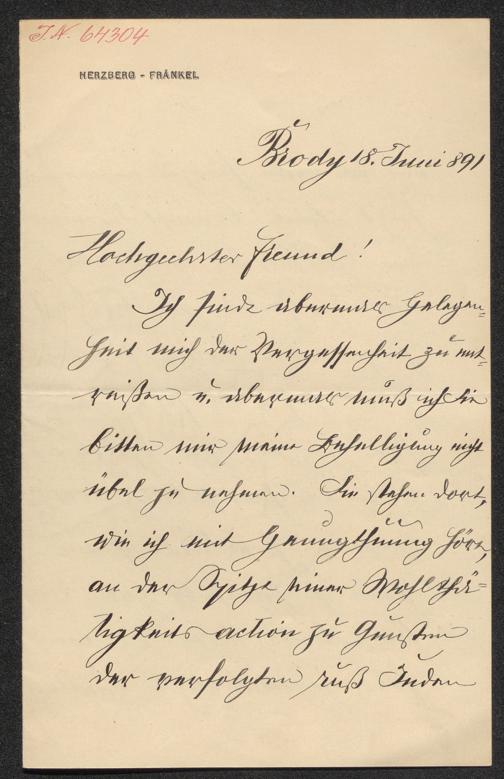 J.N. 64304
HERZBERG - FRÄNKEL
Brody 18. Juni 891
Hochgeehrter Freund!
Ich finde abermals Gelegen=
heit mich der Vergessenheit zu ent=
reißen u. abermals muß ich Sie
bitten mir meine Behelligung nicht
übel zu nehmen. Sie stehen dort,
wie ich mit Genugthuung höre,
an der Spitze einer Wohlthä=
tigkeits action zu Gunsten
der verfolgten ruß Juden